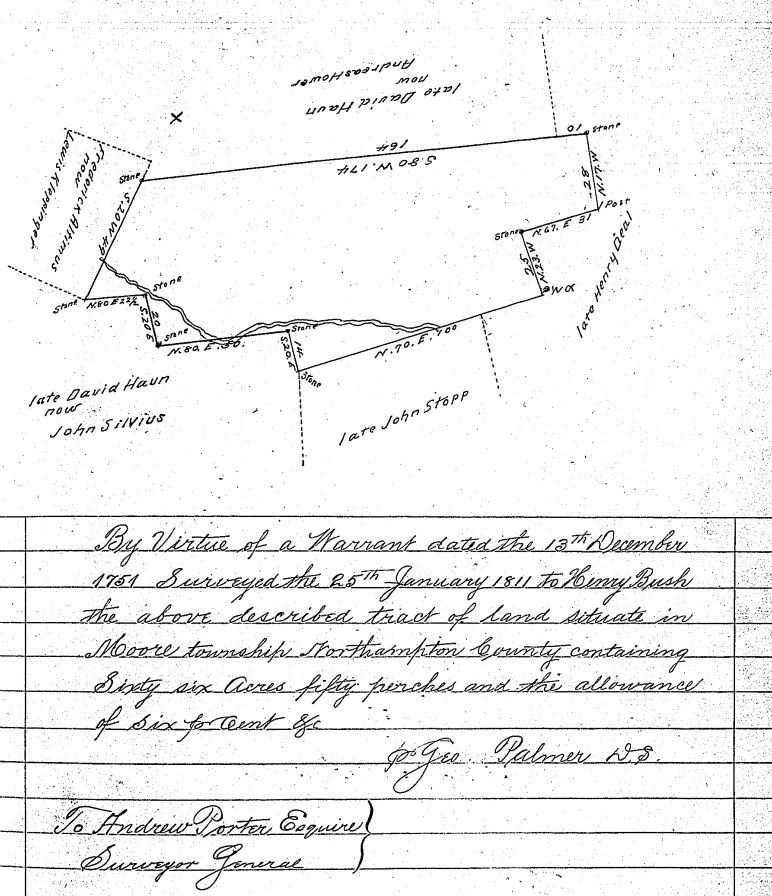 Andreas Hower
now
late David Haun
10
Stone
164
S.80 W. 174
N.17.W
28
Post
N.67.E 31
Stone
N.23.W
25
W O
late Henry Deal
Lewis Kloppinger
now
Frederick Altimus
Stone
S.20 W 49
Stone
N.80 E 22½
Stone
20
S.20 E
Stone
N.80. E. 50.
Stone
14
S.20.E
Stone
N.70.E.70
late David Haun
now
John Silvius
late John Stopp
By Virtue of a Warrant dated the 13th December
1751 Surveyed the 25th January 1811 to Henry Bush
the above described tract of land situate in
Moore township Northampton County containing
Sixty six Acres fifty perches and the allowance
of six pr Cent &c
pr Geo. Palmer D.S.
To Andrew Porter Esquire
Surveyor General